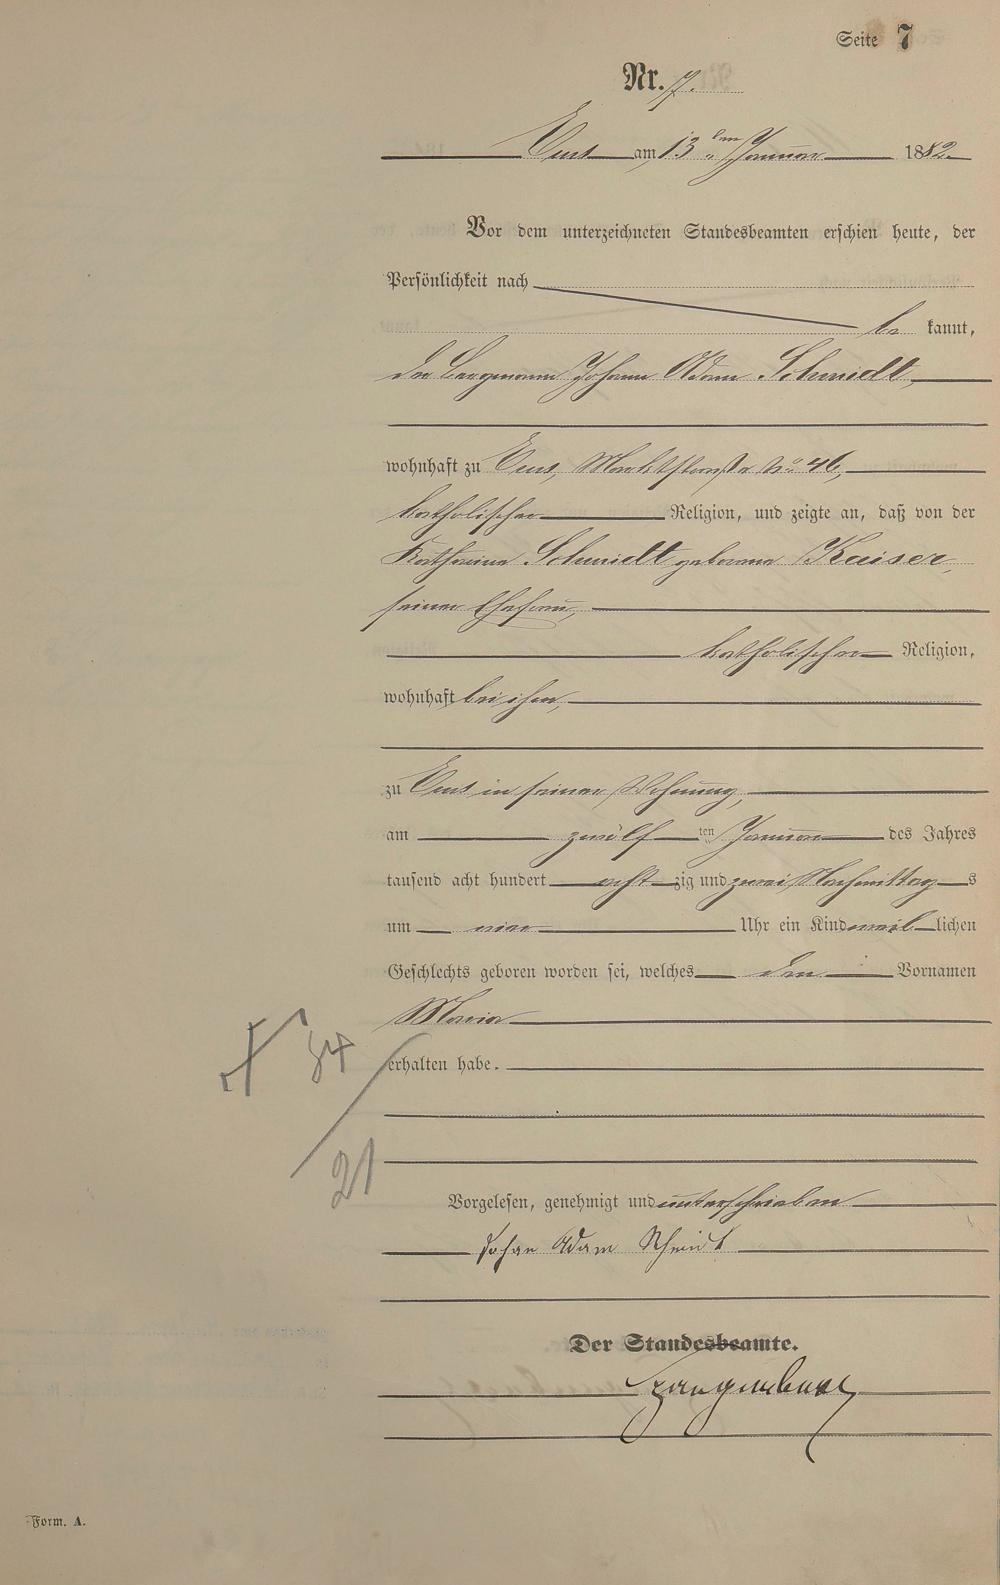 Seite 7
Nr. 7.
Ems am 13ten Januar 1882.
Vor dem unterzeichneten Standesbeamten erschien heute, der
Persönlichkeit nach
be kannt,
der Bergmann Johann Adam Schmidt,
wohnhaft zu Ems, Marktstraße No 46,
katholischer Religion, und zeigte an, daß von der
Katharina Schmidt geborene Kaiser,
seiner Ehefrau,
katholischer Religion,
wohnhaft bei ihm,
zu Ems in seiner Wohnung,
am zwölf ten Januar des Jahres
tausend acht hundert acht zig und zwei Nachmittag s
um vier Uhr ein Kind weib lichen
Geschlechts geboren worden sei, welches den Vornamen
Maria
erhalten habe.
84
21
Vorgelesen, genehmigt und unterschrieben
Johan Adam Schmidt
Der Standesbeamte.
Form. A.